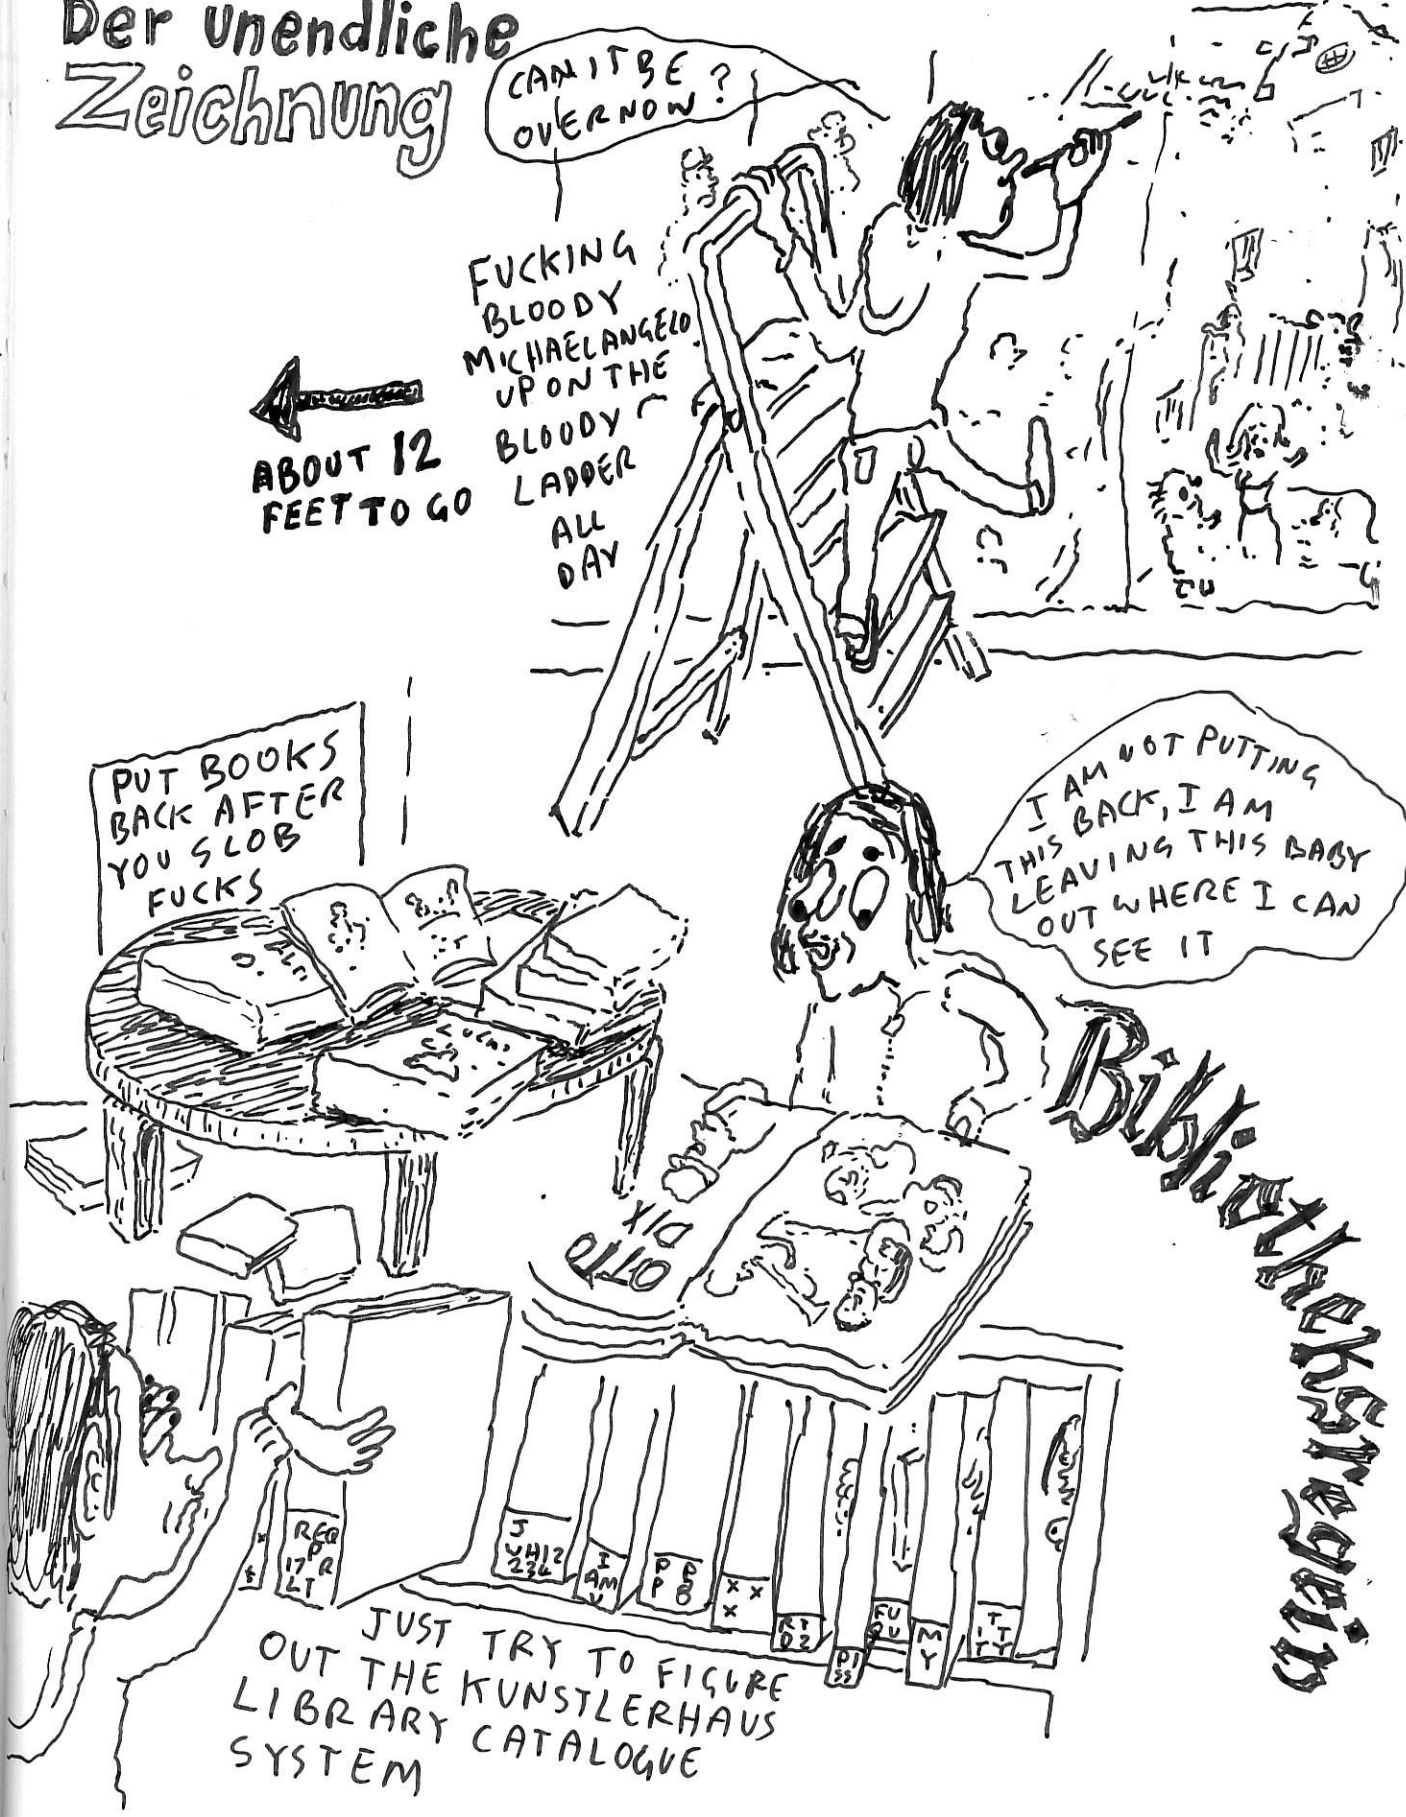 Der unendliche
Zeichnung
CAN IT BE
OVER NOW?
FUCKING
BLOODY
MICHAELANGELO
UP ON THE
BLOODY
LADDER
ALL
DAY
ABOUT 12
FEET TO GO
PUT BOOKS
BACK AFTER
YOU SLOB
FUCKS
I AM NOT PUTTING
THIS BACK, I AM
LEAVING THIS BABY
OUT WHERE I CAN
SEE IT
Bibliotheksregeln
LUCAS
OTTO
DIX
REQ
P
17 R
LT
J
VH12
234
I
AM
V
P P
P B
X X
X
RT
D2
PI
SS
FU
QU
M
Y
T
I T
T Y
JUST TRY TO FIGURE
OUT THE KUNSTLERHAUS
LIBRARY CATALOGUE
SYSTEM